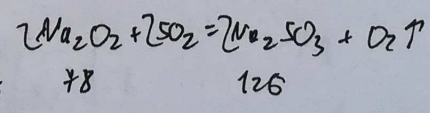 2Na₂O₂+2SO₂=2Na₂SO₃ + O₂↑
78 126